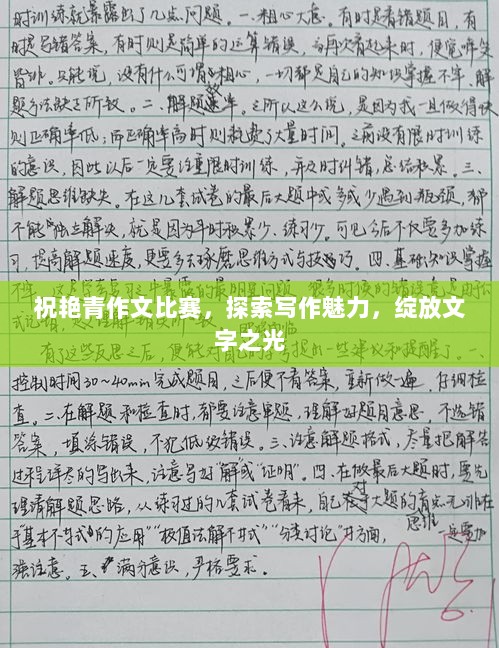 时训练就暴露出了几点问题。一、粗心大意。有时是看错题目，有
时是写错答案，有时则是简单的运算错误，当再次看起来时，便觉啼笑
皆非。只能说，没有什么可谓粗心，一切都是自己的知识掌握不牢、解
题方法缺乏所致。二、解题速率。之所以这么说，是因为我一旦做得快
则正确率低；而正确率高时则耗费了大量时间。之前没有限时训练
的意识，因此以后一定要注重限时训练，并及时纠错，总结积累。三、
解题思维缺失。在这几套试卷的最后大题中或多或少遇到瓶颈，都
不能独立解决，就是因为平时积累少、练习少。可见今后不仅要多加练
习，提高解题速度，更要多去琢磨思维方式与技巧。四、基础知识掌握
祝艳青作文比赛，探索写作魅力，绽放文
字之光
这些反思之后，便能对自己
提出一些建议和提醒了。一、
控制时间30~40min完成题目，之后便不看答案，重新做一遍，仔细检
查。二、在解题和检查时，都要注意审题，理解好题目意思，不选错
答案，填涂错误，不犯低级错误。三、注意解题格式，尽量把解答
过程详尽的写出来，注意写好"解"或"证明"。四、在做最后大题时，要先
理清解题思路，从练习过的几套试卷看来，自己对大题的
于"基本不等式的应用""极值法解不等式""分类讨论"等方面，
思维
一定要加
强注意。五、满分意识，严格要求。